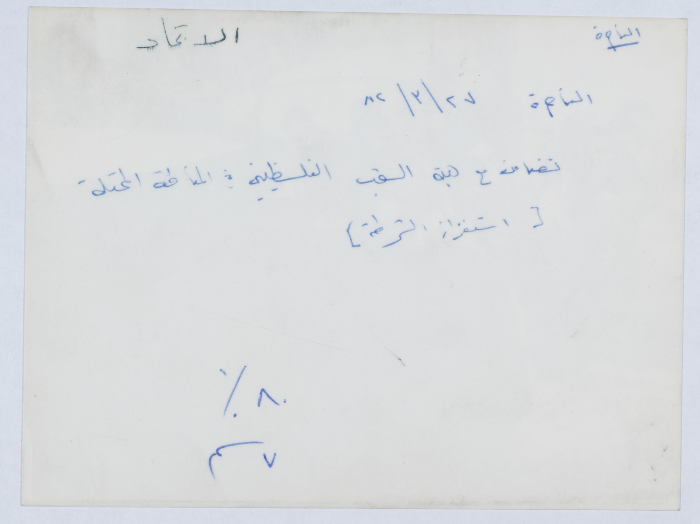 الناصرة
الاتحاد
الناصرة ٨٢/٣/٢٧
تضامن مع هبة الشعب الفلسطيني في المناطق المحتلة
[استفزاز الشرطة]
٨٠٪
٧ سم